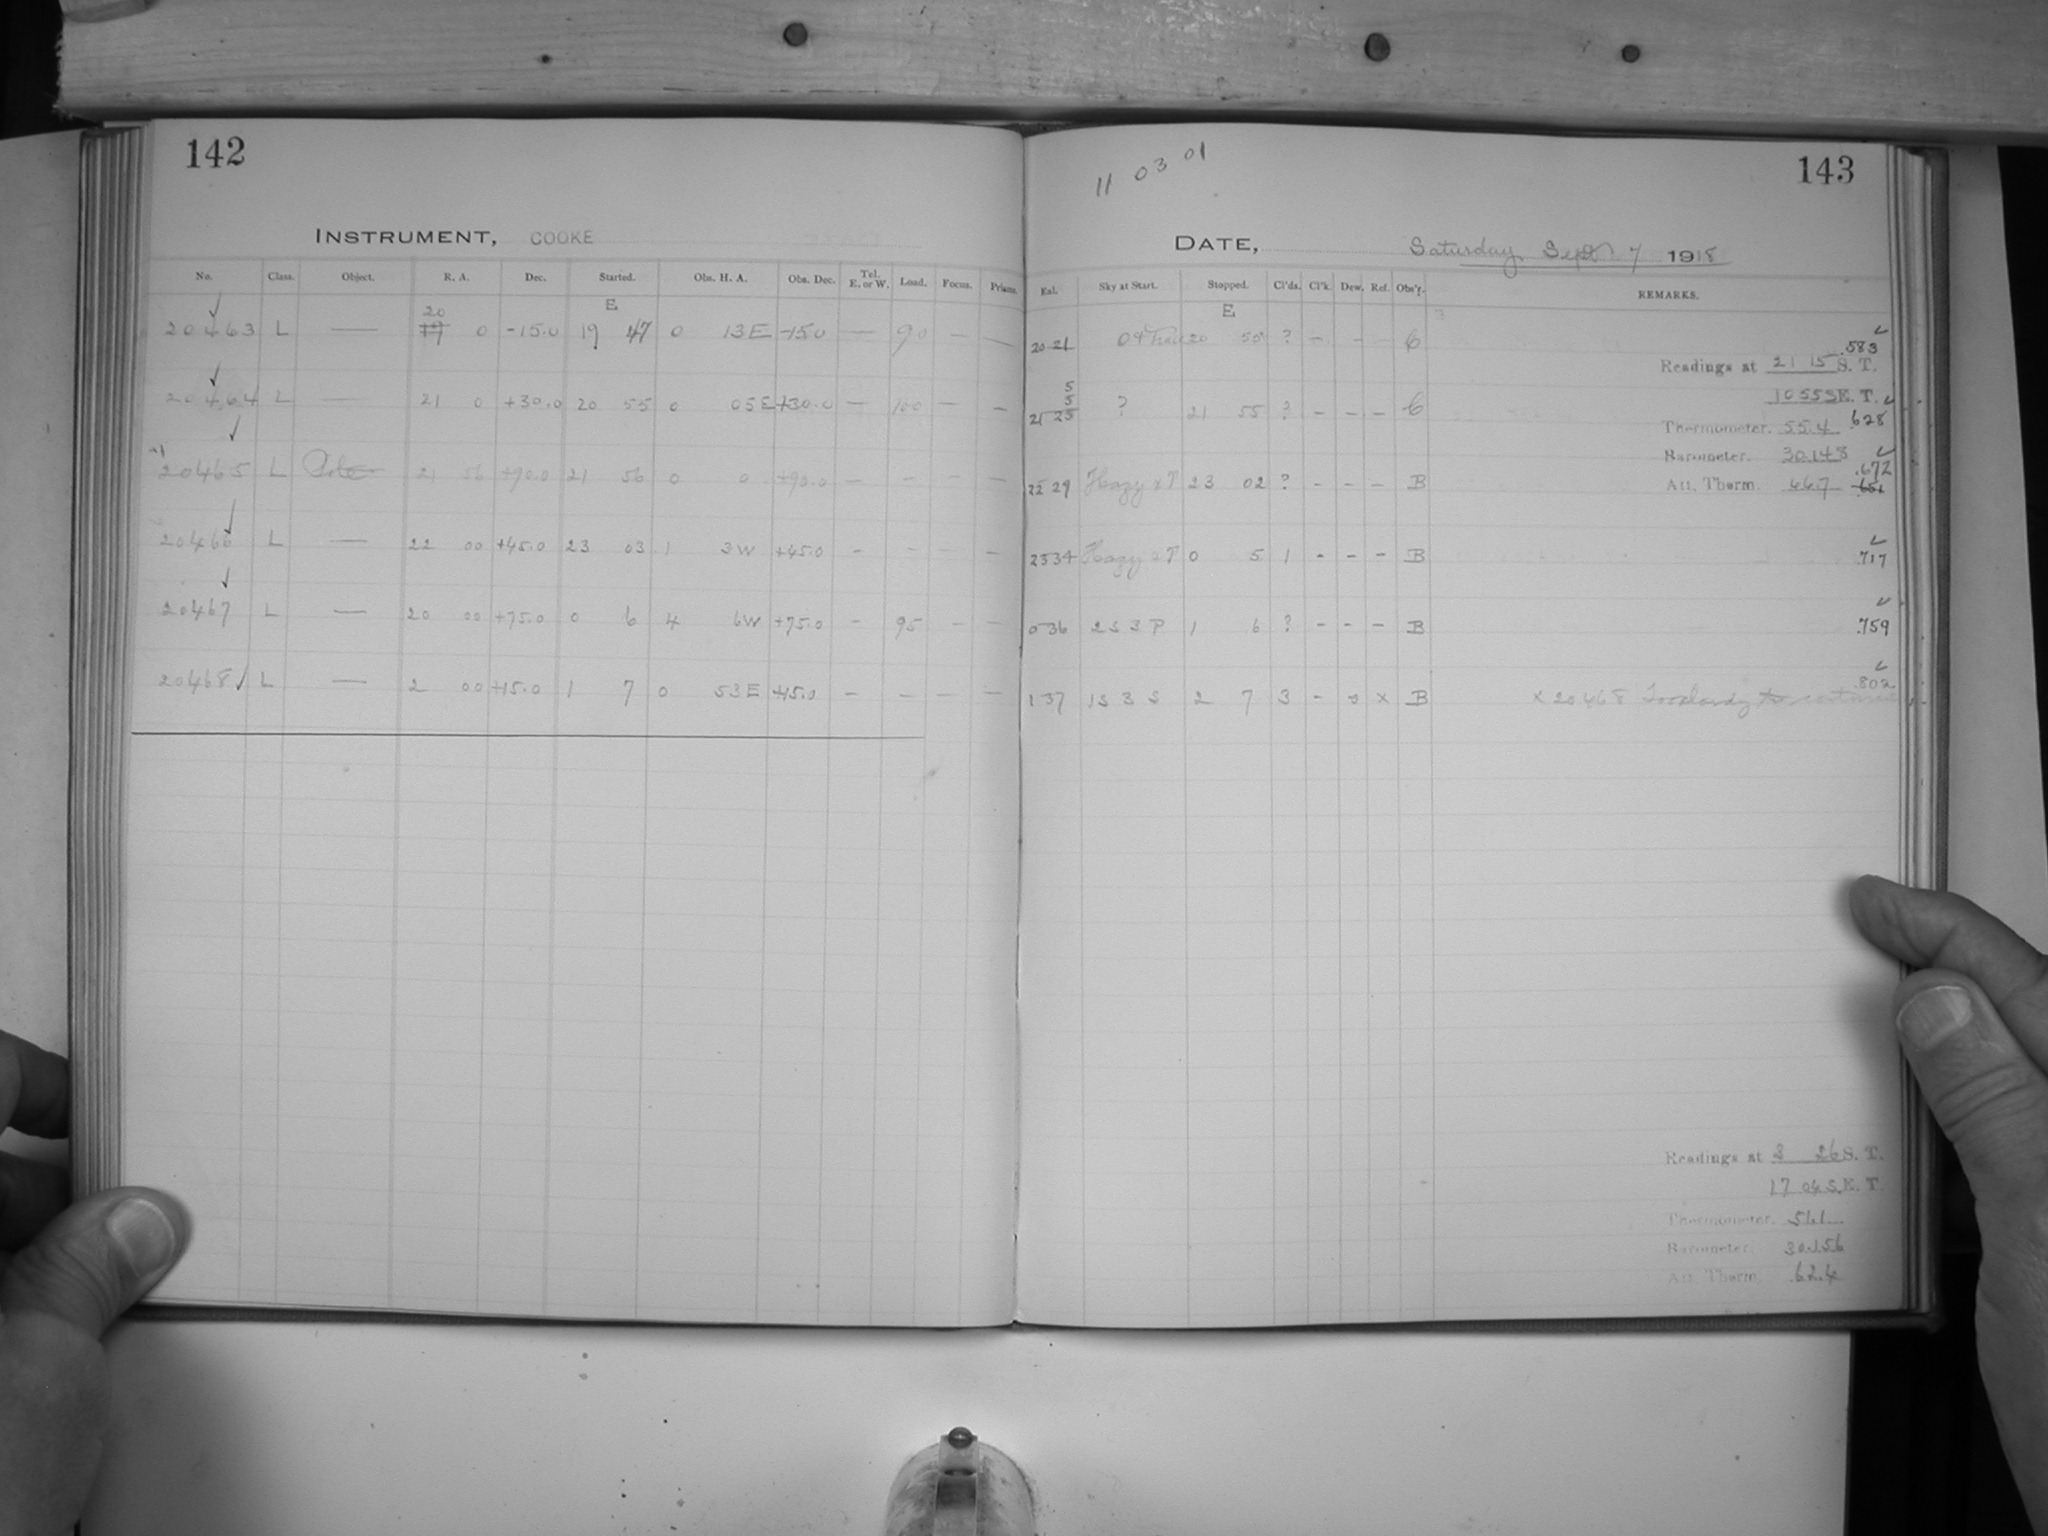 142
INSTRUMENT, COOKE
No. Class. Object. R. A. Dec. Started. Obs. H. A. Obs. Dec. Tel. E. or W. Load. Focus. Prisms.
E
20
20463 L — 19 0 -15.0 19 47 0 13E -15.0 — 90 — —
20464 L — 21 0 +30.0 20 55 0 05E +30.0 — 100 — —
20465 L 21 56 +90.0 21 56 0 0 +90.0 — - - —
20466 L — 22 00 +45.0 23 03 1 3W +45.0 - - - —
20467 L — 20 00 +75.0 0 6 4 6W +75.0 - 95 - —
20468 L — 2 00 +15.0 1 7 0 53E +15.0 — - - —
11 03 01
143
DATE, Saturday Sept 7 1918
Exl. Sky at Start. Stopped. Cl'ds. Cl'k. Dew. Ref. Obs'r. REMARKS.
E
20 21 20 55 ? - - - C .583
Readings at 21 15 S. T.
5
5
21 25 ? 21 55 ? - - - C
10 55 S E. T.
.628
Thermometer. 55.4
Barometer. 30.148
22 29 Hazy 23 02 ? - - - B .672
Att. Therm. 66.7 .651
23 34 Hazy 0 5 1 - - - B .717
0 36 2S 3 P 1 6 ? - - - B .759
1 37 1S 3 S 2 7 3 - 0 x B x 20468 Too cloudy to continue .802
Readings at 3 26 S. T.
17 04 S. E. T.
Thermometer.
Barometer. 30.156
Att. Therm. 62.4